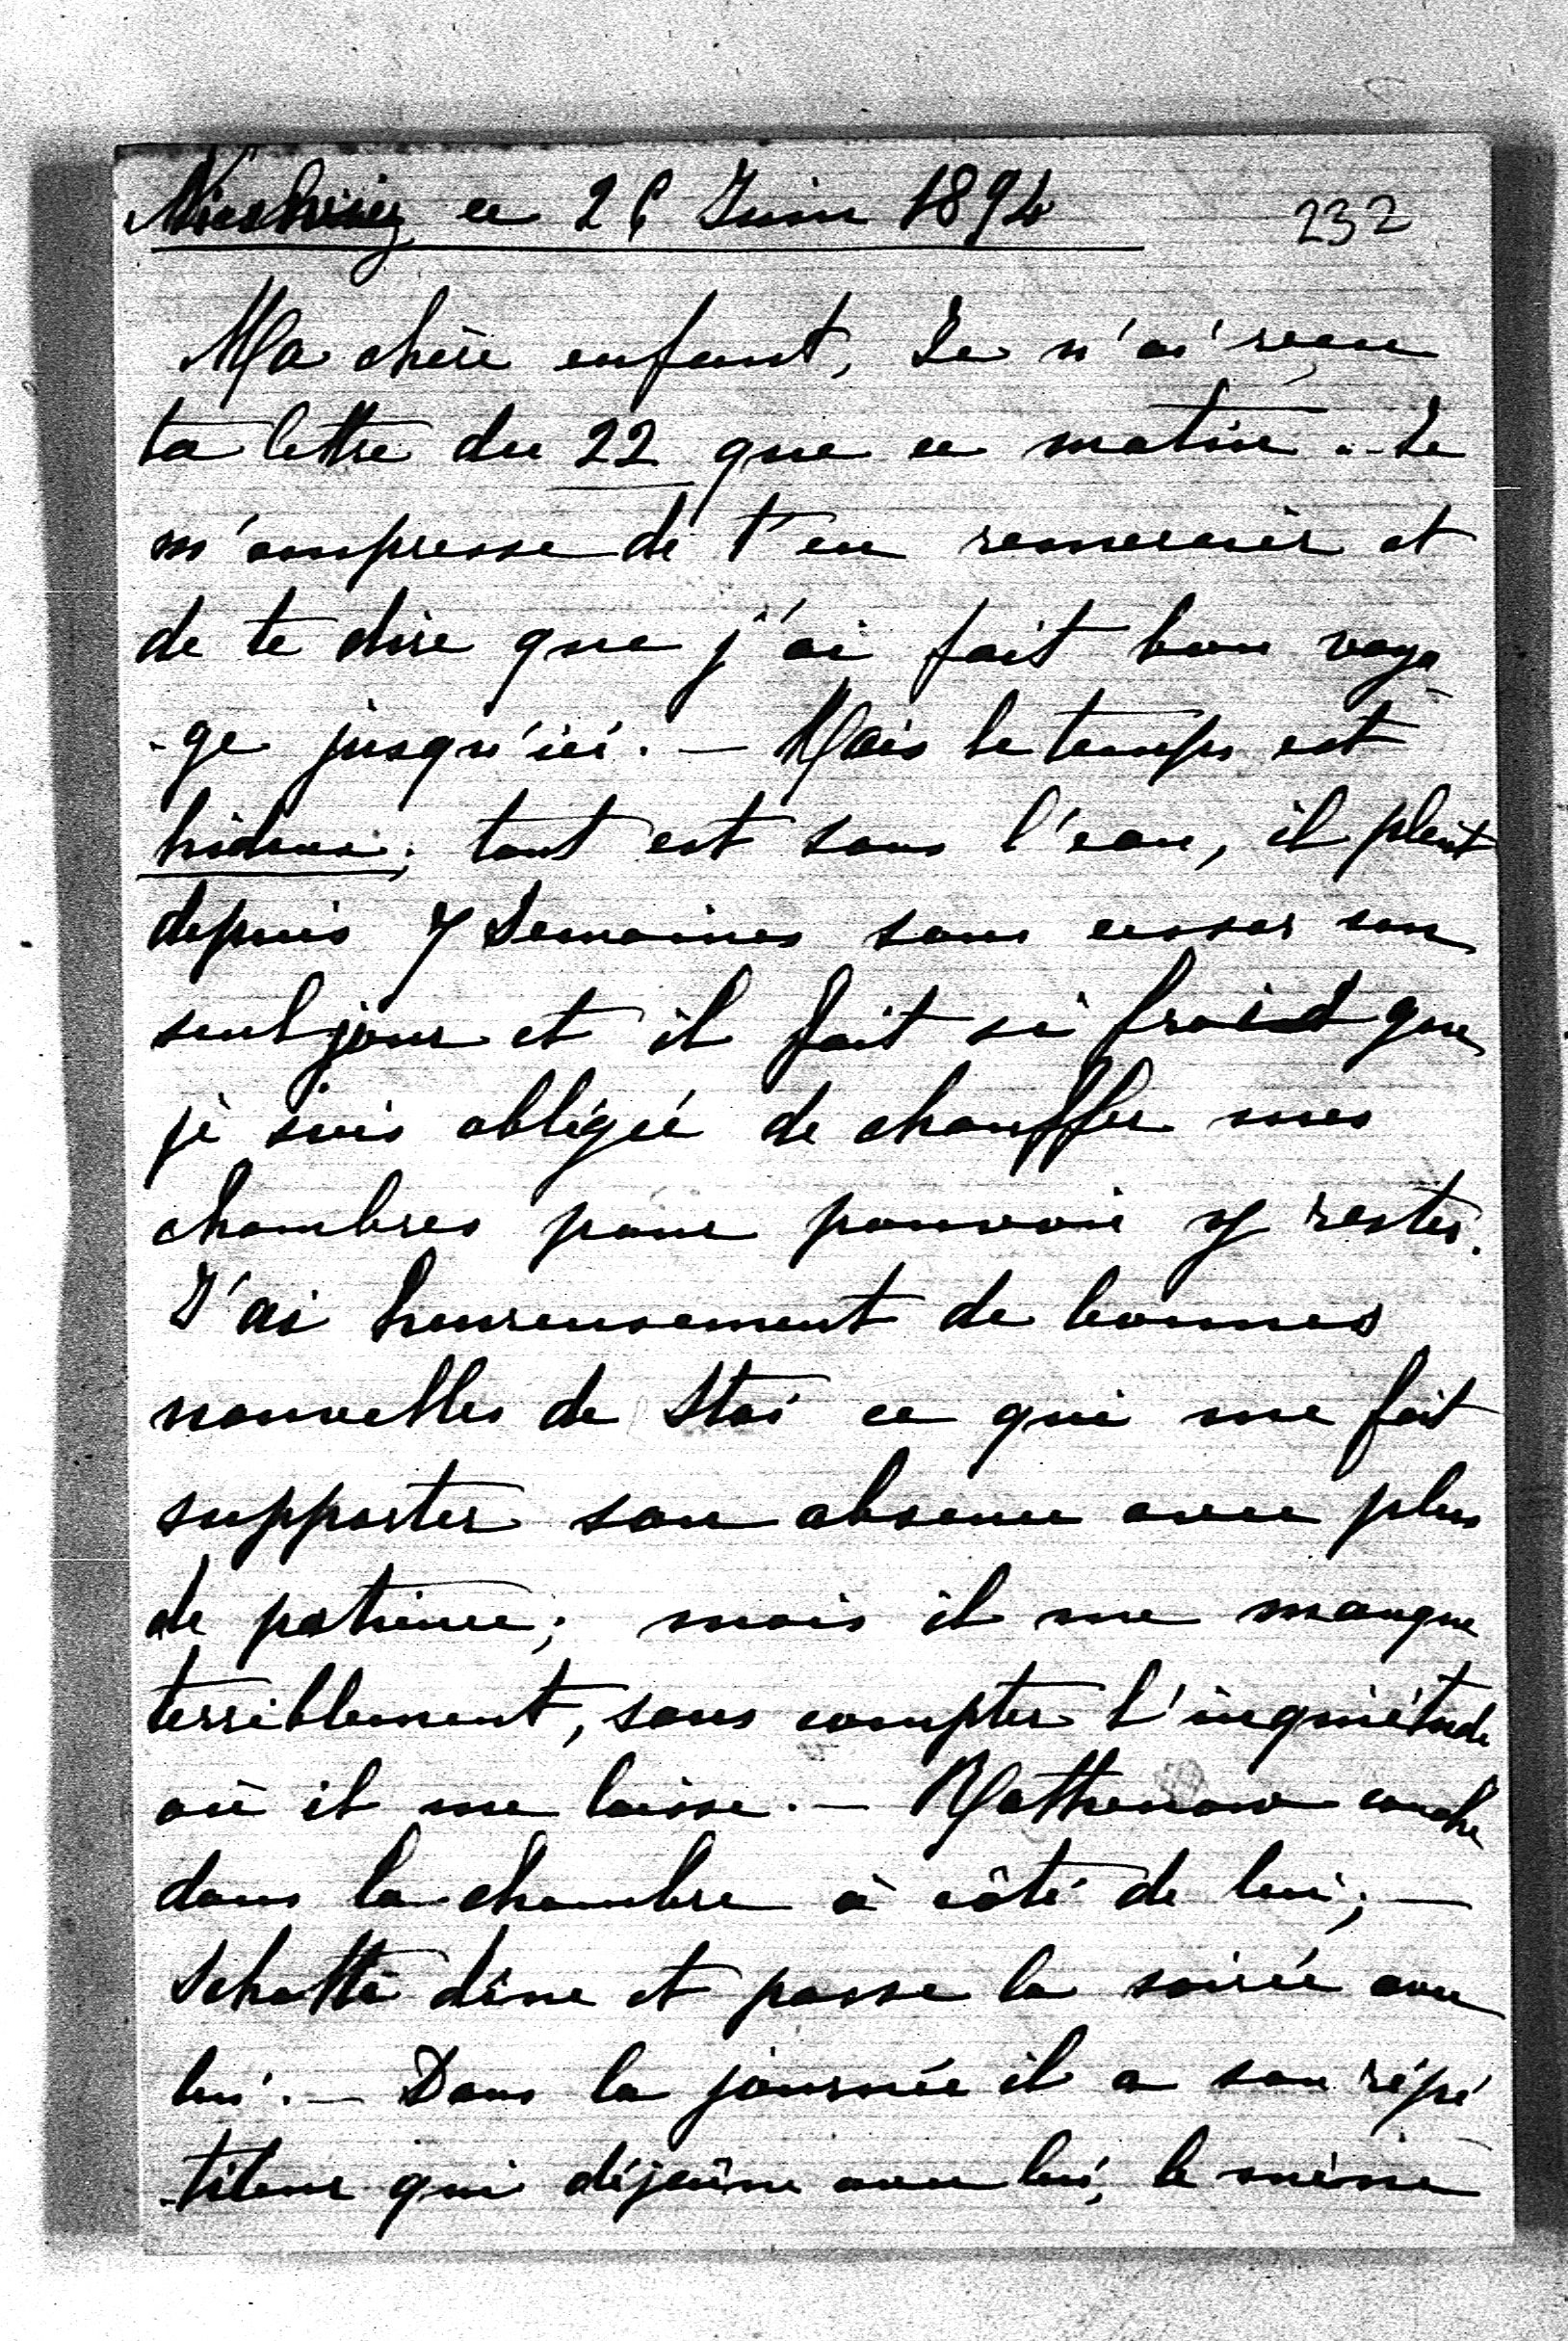 Nieswiez ce 26 Juin 1894
232
Ma chère enfant, Je n'ai reçu
ta lettre du 22 que ce matin. - Je
m'empresse de t'en remercier et
de te dire que j'ai fait bon voya
-ge jusqu'ici. — Mais le temps est
hideux; tout est sous l'eau, il pleut
depuis 7 Semaines sans cesser un
seul jour et il fait si froid que
je suis obligée de chauffer mes
chambres pour pouvoir y rester.
J'ai heureusement de bonnes
nouvelles de Stas ce qui me fait
supporter son absence avec plus
de patience; mais il me manque
terriblement, sans compter l'inquiétude
où il me laisse. — couche
dans la chambre à côté de lui; —
Schotte dîne et passe la soirée avec
lui. — Dans la journée il a son répé
-titeur qui déjeûne avec lui, le mène